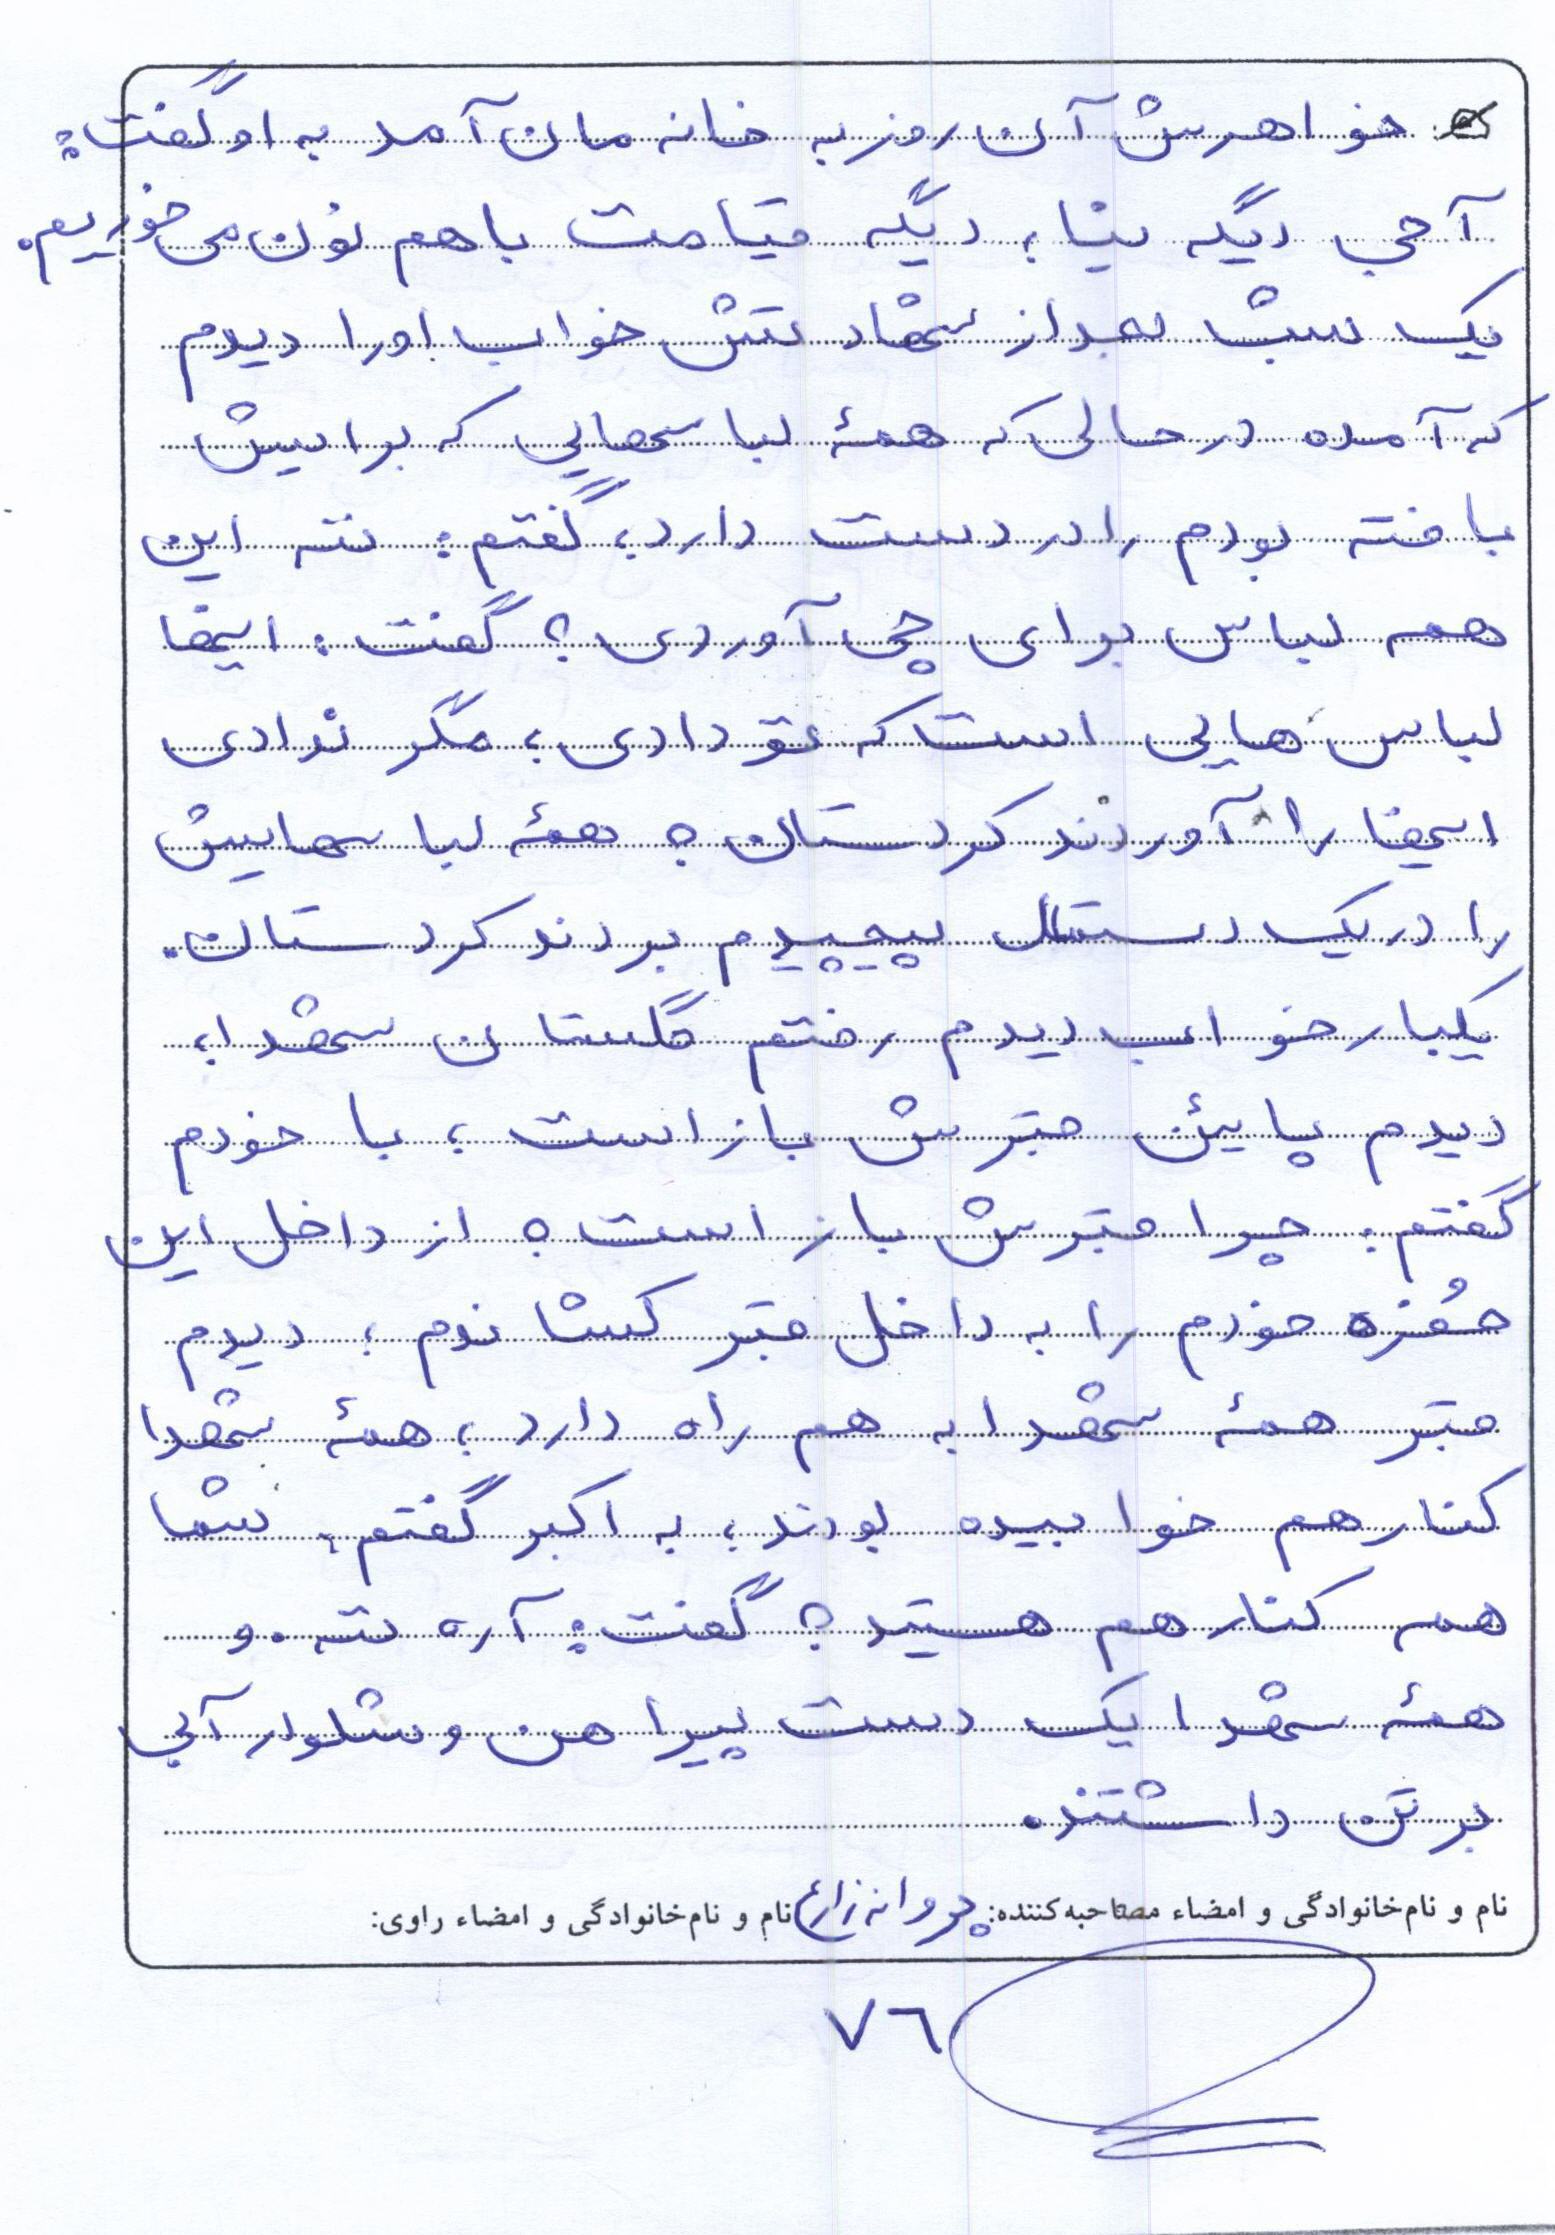 خواهرش آن روز به خانه مان آمد به او گفت:
آجی دیگه بیا، دیگه قیامت با هم نون می خوریم.
یک شب بعد از شهادتش خواب او را دیدم
که آمده در حالی که همهٔ لباسهایی که برایش
بافته بودم را در دست دارد، گفتم: ننه این
همه لباس برای چی آوردی؟ گفت: اینها
لباس هایی است که تو دادی، مگر ندادی
اینها را آوردند کردستان؟ همهٔ لباسهایش
را در یک دستمال پیچیدم بردند کردستان.
یکبار خواب دیدم رفتم گلستان شهدا،
دیدم پایین قبرش باز است، با خودم
گفتم: چرا قبرش باز است؟ از داخل این
حُفره خودم را به داخل قبر کشاندم، دیدم
قبر همهٔ شهدا به هم راه دارد، همهٔ شهدا
کنار هم خوابیده بودند، به اکبر گفتم: شما
همه کنار هم هستید؟ گفت: آره ننه. و
همهٔ شهدا یک دست پیراهن و شلوار آبی
بر تن داشتند.
نام و نام‌خانوادگی و امضاء مصاحبه‌کننده: پروانه زارع نام و نام‌خانوادگی و امضاء راوی:
۷۶